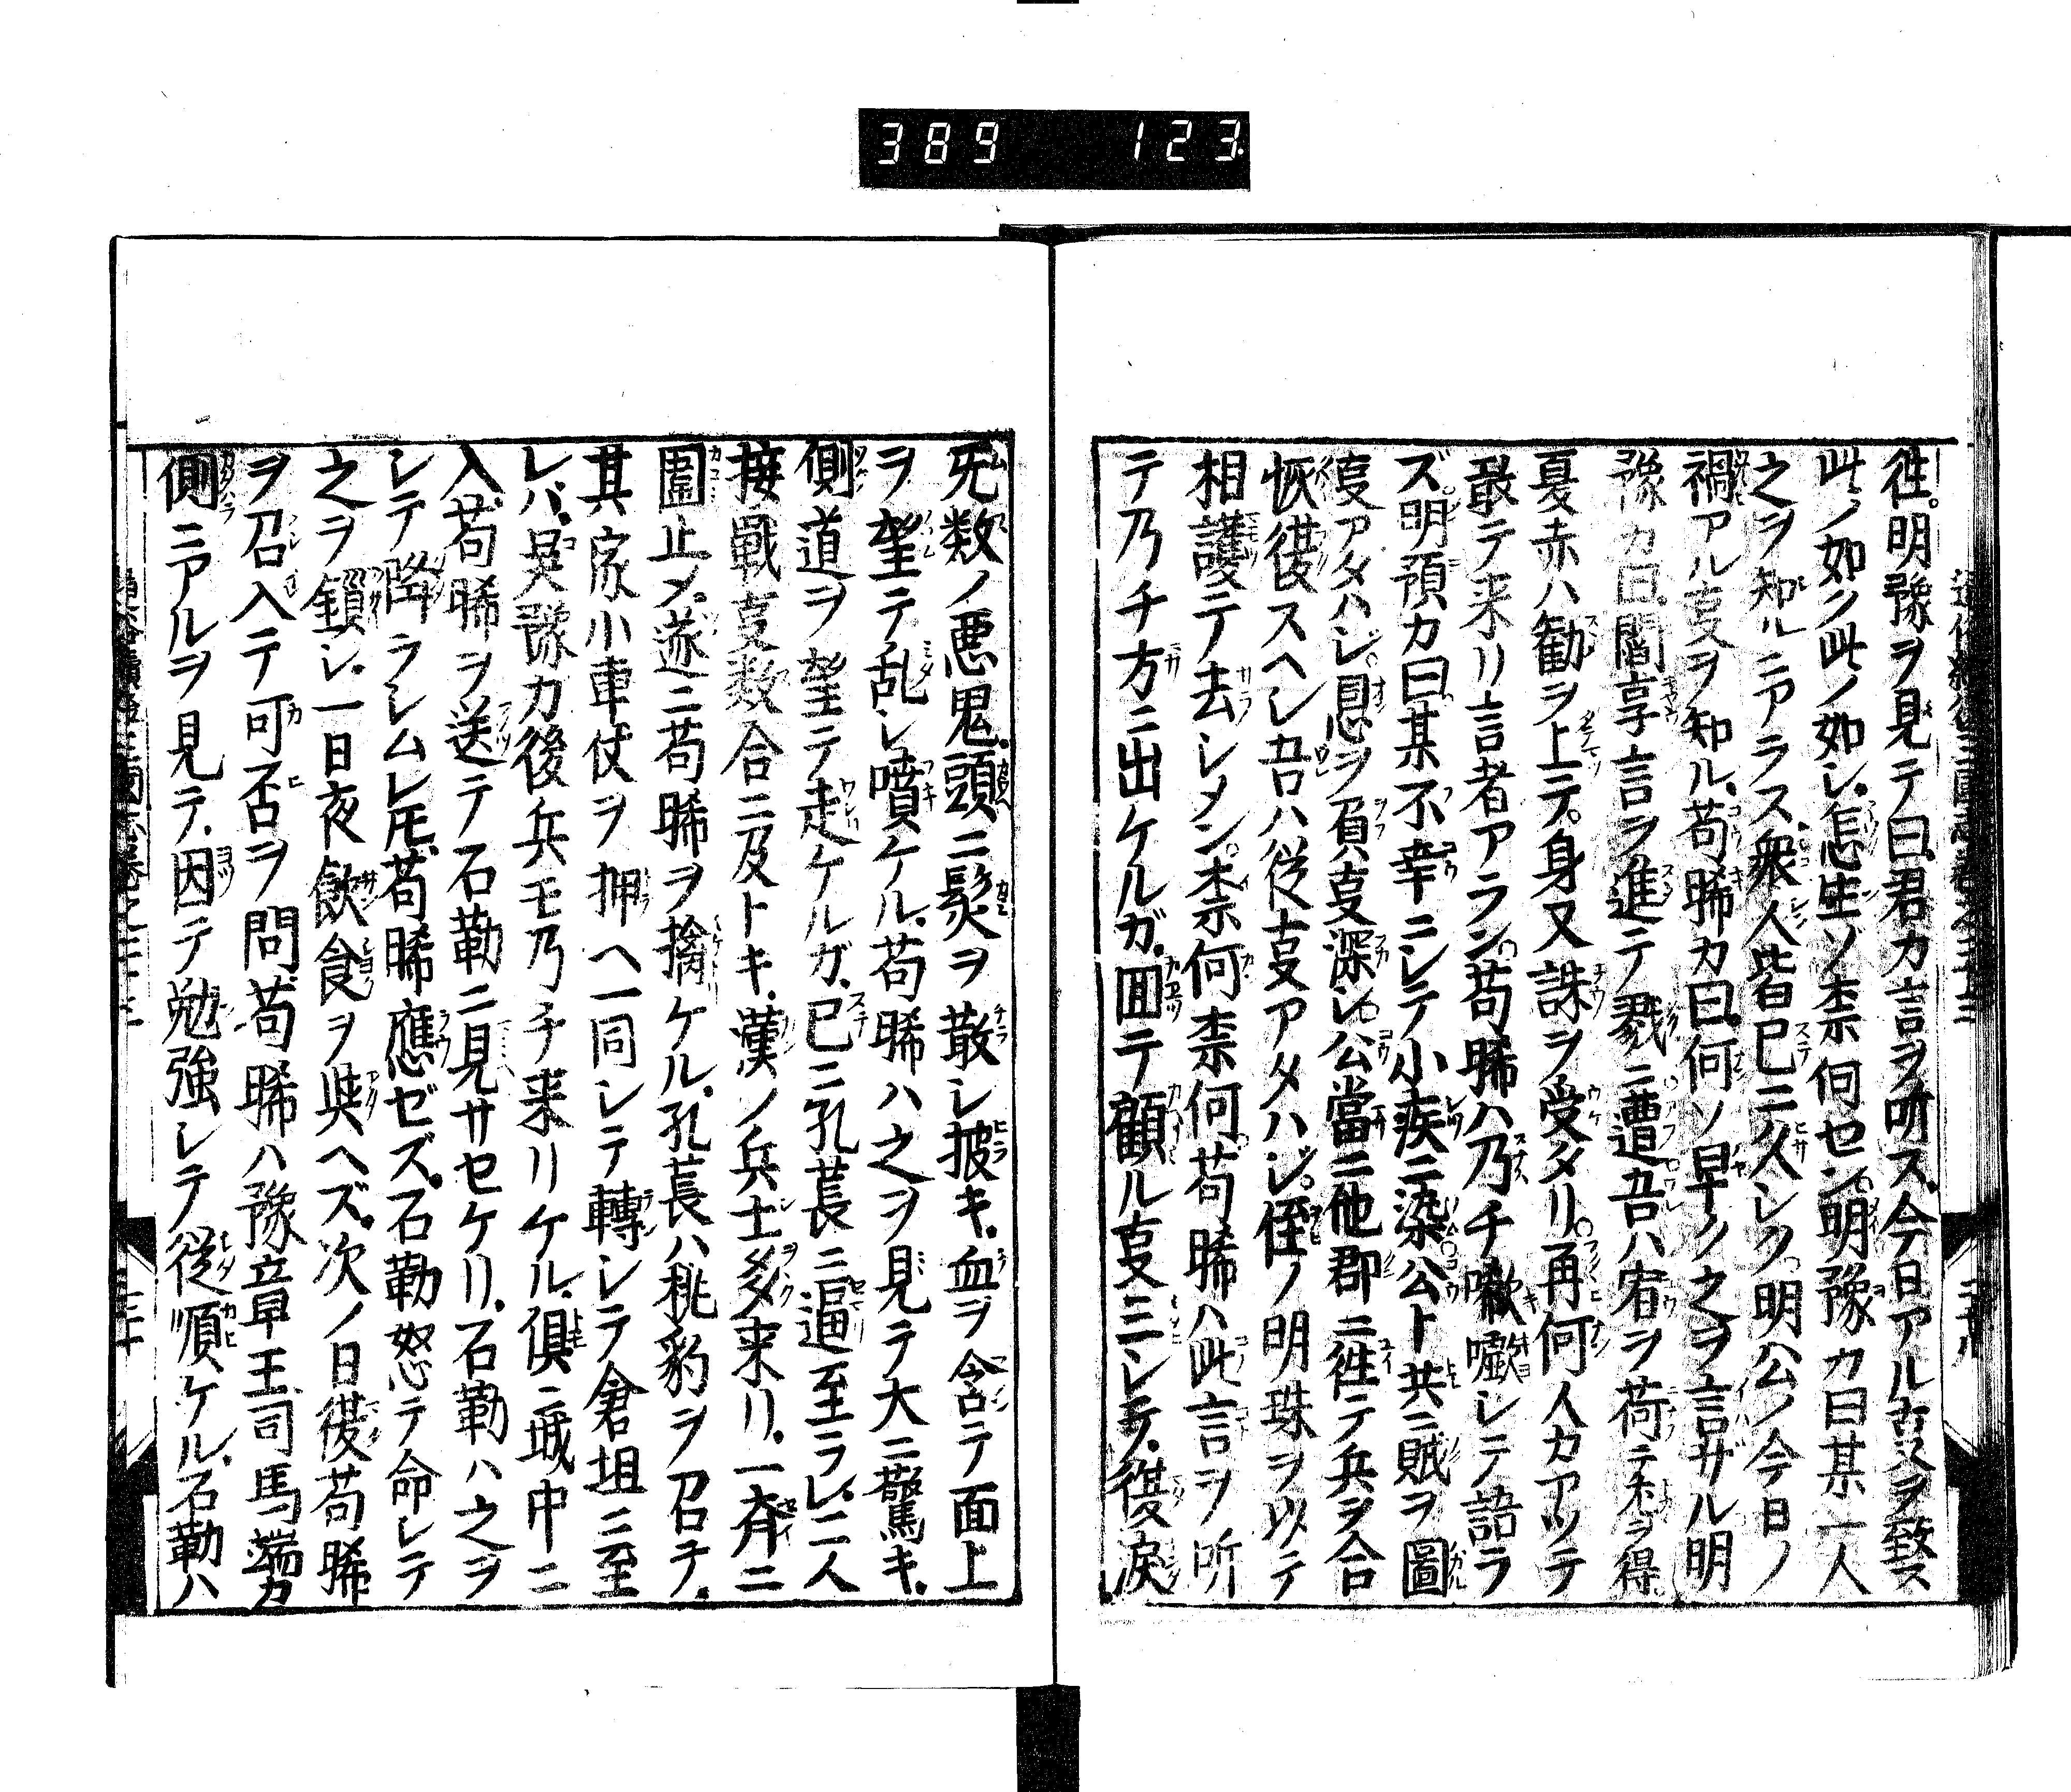 389 123
徃。明豫ヲ見テ曰。君カ言ヲ听ス。今日アル叓ヲ致ス
此ノ如ク此ノ如シ。怎生ゾ柰何セン。明豫カ曰某一人
之ヲ知ルニアラス。衆人皆已ニ久シク。明公ノ今日ノ
禍アル叓ヲ知ル。苟晞カ曰。何ソ早ク之ヲ言ザル明
豫カ曰。閻亨言ヲ進テ戮ニ遭。吾ハ宥ヲ荷テ杀ヲ得
夏赤ハ勧ヲ上テ。身又誅ヲ受タリ。再何人カアツテ
敢テ来リ言者アラン。苟晞ハ乃チ嗽噓シテ語ラ
ズ。明預カ曰某不幸ニシテ小疾ニ染。公ト共ニ賊ヲ圖
叓アタハシ。恩ヲ負叓深シ。公當ニ他郡ニ徃テ兵ヲ合
恢復スヘシ吾ハ従叓アタハジ。侄ノ明珠ヲ以テ
相護テ去シメン。柰何柰何。苟晞ハ此言ヲ听
テ乃チ方ニ出ケルガ。囬テ顧ル叓三シテ。復涙
旡数ノ悪鬼。頭ニ髮ヲ散シ披キ。血ヲ含テ面上
ヲ望テ乱シ噴ケル。苟晞ハ之ヲ見テ大ニ驚キ。
側道ヲ望テ走ケルガ。已ニ孔萇ニ逼至ラレ。二人
接戰叓数合ニ及トキ。漢ノ兵士多来リ。一斉ニ
圍止メ。遂ニ苟晞ヲ擒ケル。孔萇ハ桃豹ヲ召チ。
其家小車仗ヲ押ヘ一同シテ轉シテ倉垣ニ至
レバ。吴豫カ後兵モ乃チ来リケル。俱ニ城中ニ
入。苟晞ヲ送テ石勒ニ見サセケリ。石勒ハ之ヲ
シテ降ラシムレ𪜈。苟晞應ゼズ。石勒怒テ命シテ
之ヲ鎖シ。一日夜飲食ヲ與ヘズ。次ノ日復苟晞
ヲ召入テ可否ヲ問。苟晞ハ豫章王司馬端カ
側ニアルヲ見テ。因テ勉強シテ従順ケル。石勒ハ